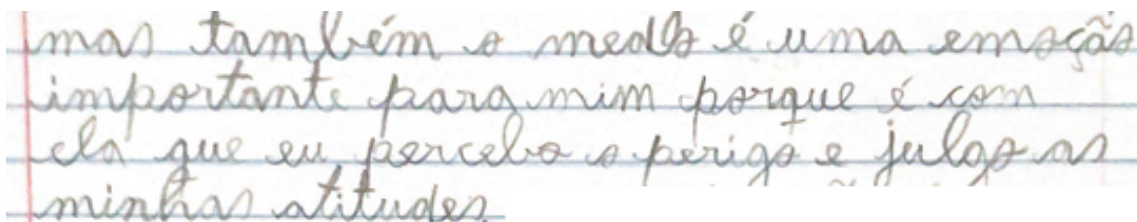 mas também o medo é uma emoção
importante para mim porque é com
ela que eu percebo o perigo e julgo as
minhas atitudes